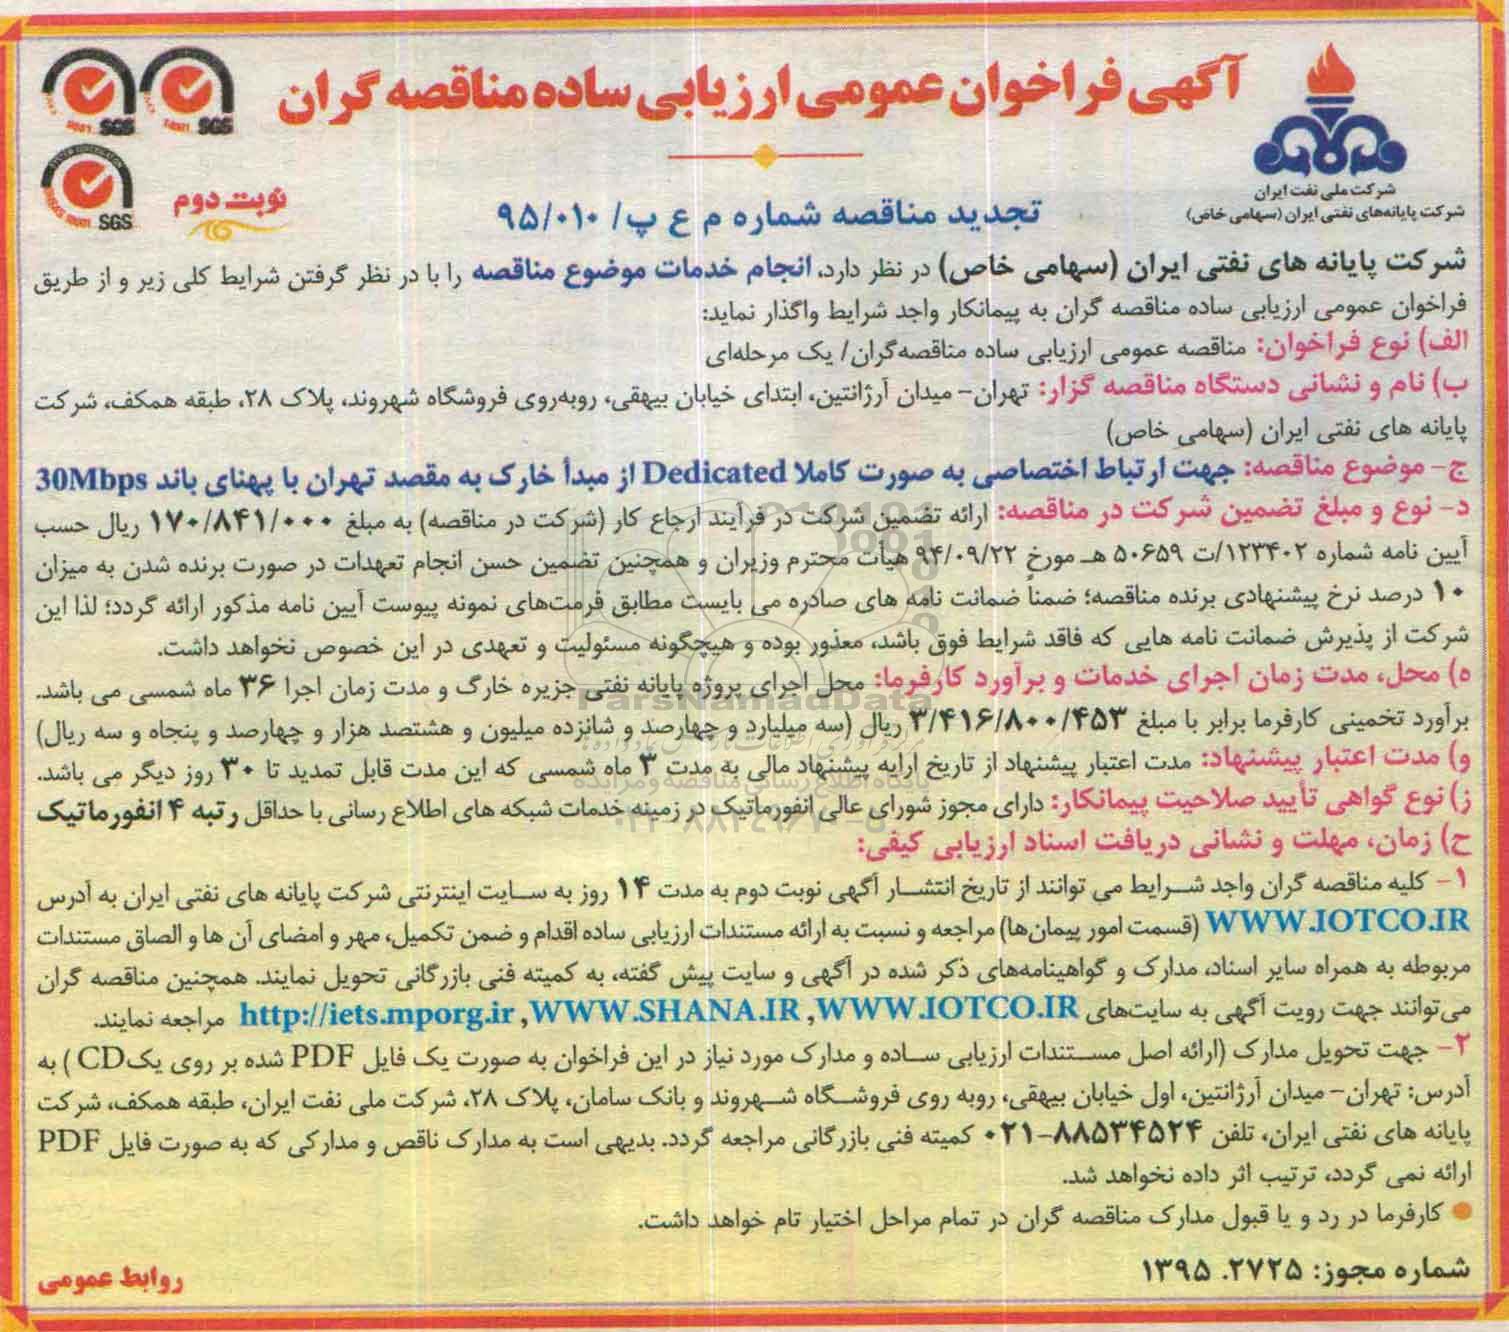 آگهی فراخوان عمومی ارزیابی ساده مناقصه گران
شرکت ملی نفت ایران
شرکت پایانه‌های نفتی ایران (سهامی خاص)
SGS
SGS
SGS
نوبت دوم
تجدید مناقصه شماره م ع پ/ ۹۵/۰۱۰
شرکت پایانه های نفتی ایران (سهامی خاص) در نظر دارد، انجام خدمات موضوع مناقصه را با در نظر گرفتن شرایط کلی زیر و از طریق
فراخوان عمومی ارزیابی ساده مناقصه گران به پیمانکار واجد شرایط واگذار نماید:
الف) نوع فراخوان: مناقصه عمومی ارزیابی ساده مناقصه‌گران/ یک مرحله‌ای
ب) نام و نشانی دستگاه مناقصه گزار: تهران- میدان آرژانتین، ابتدای خیابان بیهقی، روبه‌روی فروشگاه شهروند، پلاک ۲۸، طبقه همکف، شرکت
پایانه های نفتی ایران (سهامی خاص)
ج- موضوع مناقصه: جهت ارتباط اختصاصی به صورت کاملا Dedicated از مبدأ خارک به مقصد تهران با پهنای باند 30Mbps
د- نوع و مبلغ تضمین شرکت در مناقصه: ارائه تضمین شرکت در فرآیند ارجاع کار (شرکت در مناقصه) به مبلغ ۱۷۰/۸۴۱/۰۰۰ ریال حسب
آیین نامه شماره ۱۲۳۴۰۲/ت ۵۰۶۵۹ هـ مورخ ۹۴/۰۹/۲۲ هیأت محترم وزیران و همچنین تضمین حسن انجام تعهدات در صورت برنده شدن به میزان
۱۰ درصد نرخ پیشنهادی برنده مناقصه؛ ضمناً ضمانت نامه های صادره می بایست مطابق فرمت‌های نمونه پیوست آیین نامه مذکور ارائه گردد؛ لذا این
شرکت از پذیرش ضمانت نامه هایی که فاقد شرایط فوق باشد، معذور بوده و هیچگونه مسئولیت و تعهدی در این خصوص نخواهد داشت.
ه) محل، مدت زمان اجرای خدمات و برآورد کارفرما: محل اجرای پروژه پایانه نفتی جزیره خارگ و مدت زمان اجرا ۳۶ ماه شمسی می باشد.
برآورد تخمینی کارفرما برابر با مبلغ ۳/۴۱۶/۸۰۰/۴۵۳ ریال (سه میلیارد و چهارصد و شانزده میلیون و هشتصد هزار و چهارصد و پنجاه و سه ریال)
و) مدت اعتبار پیشنهاد: مدت اعتبار پیشنهاد از تاریخ ارایه پیشنهاد مالی به مدت ۳ ماه شمسی که این مدت قابل تمدید تا ۳۰ روز دیگر می باشد.
ز) نوع گواهی تأیید صلاحیت پیمانکار: دارای مجوز شورای عالی انفورماتیک در زمینه خدمات شبکه های اطلاع رسانی با حداقل رتبه ۴ انفورماتیک
ح) زمان، مهلت و نشانی دریافت اسناد ارزیابی کیفی:
۱- کلیه مناقصه گران واجد شرایط می توانند از تاریخ انتشار آگهی نوبت دوم به مدت ۱۴ روز به سایت اینترنتی شرکت پایانه های نفتی ایران به آدرس
WWW.IOTCO.IR (قسمت امور پیمان‌ها) مراجعه و نسبت به ارائه مستندات ارزیابی ساده اقدام و ضمن تکمیل، مهر و امضای آن ها و الصاق مستندات
مربوطه به همراه سایر اسناد، مدارک و گواهینامه‌های ذکر شده در آگهی و سایت پیش گفته، به کمیته فنی بازرگانی تحویل نمایند. همچنین مناقصه گران
می‌توانند جهت رویت آگهی به سایت‌های WWW.IOTCO.IR ,WWW.SHANA.IR ,http://iets.mporg.ir مراجعه نمایند.
۲- جهت تحویل مدارک (ارائه اصل مستندات ارزیابی ساده و مدارک مورد نیاز در این فراخوان به صورت یک فایل PDF شده بر روی یکCD ) به
آدرس: تهران- میدان آرژانتین، اول خیابان بیهقی، روبه روی فروشگاه شهروند و بانک سامان، پلاک ۲۸، شرکت ملی نفت ایران، طبقه همکف، شرکت
پایانه های نفتی ایران، تلفن ۸۸۵۳۴۵۲۴-۰۲۱ کمیته فنی بازرگانی مراجعه گردد. بدیهی است به مدارک ناقص و مدارکی که به صورت فایل PDF
ارائه نمی گردد، ترتیب اثر داده نخواهد شد.
● کارفرما در رد و یا قبول مدارک مناقصه گران در تمام مراحل اختیار تام خواهد داشت.
شماره مجوز: ۲۷۲۵. ۱۳۹۵
روابط عمومی
ParsNamadData
پایگاه اطلاع رسانی مناقصه و مزایده